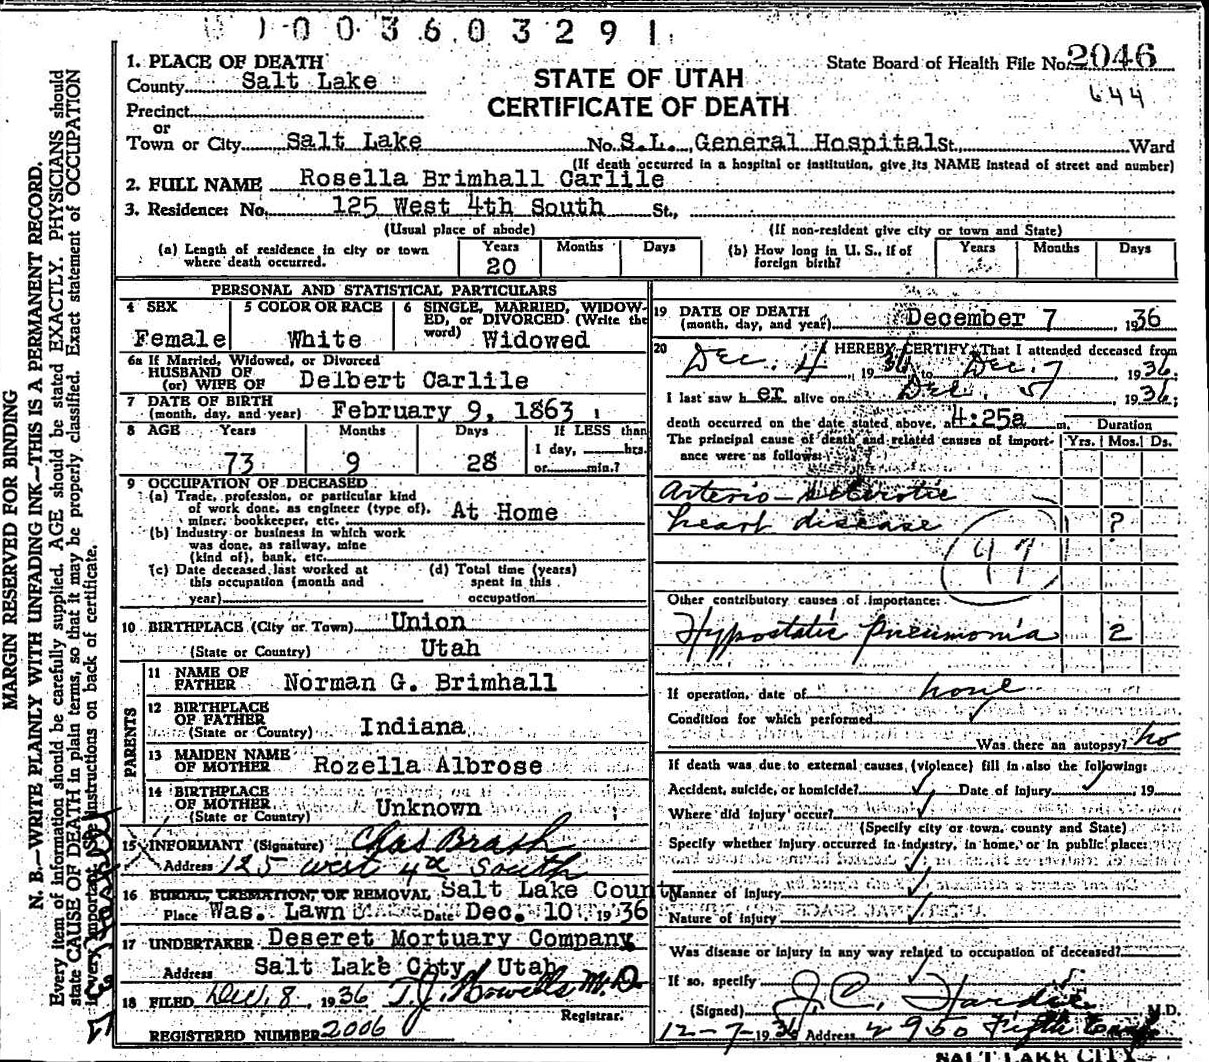 1003603291
1. PLACE OF DEATH
State Board of Health File No. 2046
County Salt Lake
STATE OF UTAH
644
Precinct
CERTIFICATE OF DEATH
or
Town or City Salt Lake No. S.L. General Hospital St., Ward
(If death occurred in a hospital or institution, give its NAME instead of street and number)
2. FULL NAME Rosella Brimhall Carlile
3. Residence: No. 125 West 4th South St.,
(Usual place of abode) (If non-resident give city or town and State)
(a) Length of residence in city or town where death occurred. Years 20 Months Days
(b) How long in U. S., if of foreign birth? Years Months Days
PERSONAL AND STATISTICAL PARTICULARS
4 SEX Female
5 COLOR OR RACE White
6 SINGLE, MARRIED, WIDOWED, or DIVORCED (Write the word) Widowed
6a If Married, Widowed, or Divorced
HUSBAND OF
(or) WIFE OF Delbert Carlile
7 DATE OF BIRTH
(month, day, and year) February 9, 1863
8 AGE Years Months Days If LESS than
1 day, hrs.
73 9 28 or min.?
9 OCCUPATION OF DECEASED
(a) Trade, profession, or particular kind
of work done, as engineer (type of),
miner, bookkeeper, etc. At Home
(b) Industry or business in which work
was done, as railway, mine
(kind of), bank, etc.
(c) Date deceased last worked at
this occupation (month and
year)
(d) Total time (years)
spent in this
occupation
10 BIRTHPLACE (City or Town) Union
(State or Country) Utah
PARENTS
11 NAME OF
FATHER Norman G. Brimhall
12 BIRTHPLACE
OF FATHER
(State or Country) Indiana
13 MAIDEN NAME
OF MOTHER Rozella Albrose
14 BIRTHPLACE
OF MOTHER
(State or Country) Unknown
15 INFORMANT (Signature) Chas Brash
Address 125 west 4th South
16 BURIAL, CREMATION, OR REMOVAL Salt Lake County
Place Was. Lawn Date Dec. 10, 1936
17 UNDERTAKER Deseret Mortuary Company
Address Salt Lake City, Utah
18 FILED Dec. 8, 1936 T.J. Howells M.D.
Registrar.
REGISTERED NUMBER 2006
19 DATE OF DEATH
(month, day, and year) December 7, 1936
20 I HEREBY CERTIFY, That I attended deceased from
Dec. 4, 1936, to Dec. 7, 1936;
I last saw her alive on Dec. 1936;
death occurred on the date stated above, at 4:25a m.
Duration
The principal cause of death and related causes of importance were as follows: Yrs. Mos. Ds.
Arterio-sclerotic
heart disease ?
Other contributory causes of importance:
Hypostatic Pneumonia 2
If operation, date of none
Condition for which performed
Was there an autopsy? no
If death was due to external causes (violence) fill in also the following:
Accident, suicide, or homicide? Date of injury 19
Where did injury occur?
(Specify city or town, county and State)
Specify whether injury occurred in industry, in home, or in public place:
Manner of injury
Nature of injury
Was disease or injury in any way related to occupation of deceased?
If so, specify
(Signed) J. C. Hardie M.D.
12-7-1936 Address
SALT LAKE CITY
MARGIN RESERVED FOR BINDING
N. B.—WRITE PLAINLY WITH UNFADING INK—THIS IS A PERMANENT RECORD.
Every item of information should be carefully supplied. AGE should be stated EXACTLY. PHYSICIANS should
state CAUSE OF DEATH in plain terms, so that it may be properly classified. Exact statement of OCCUPATION
is very important. See instructions on back of certificate.